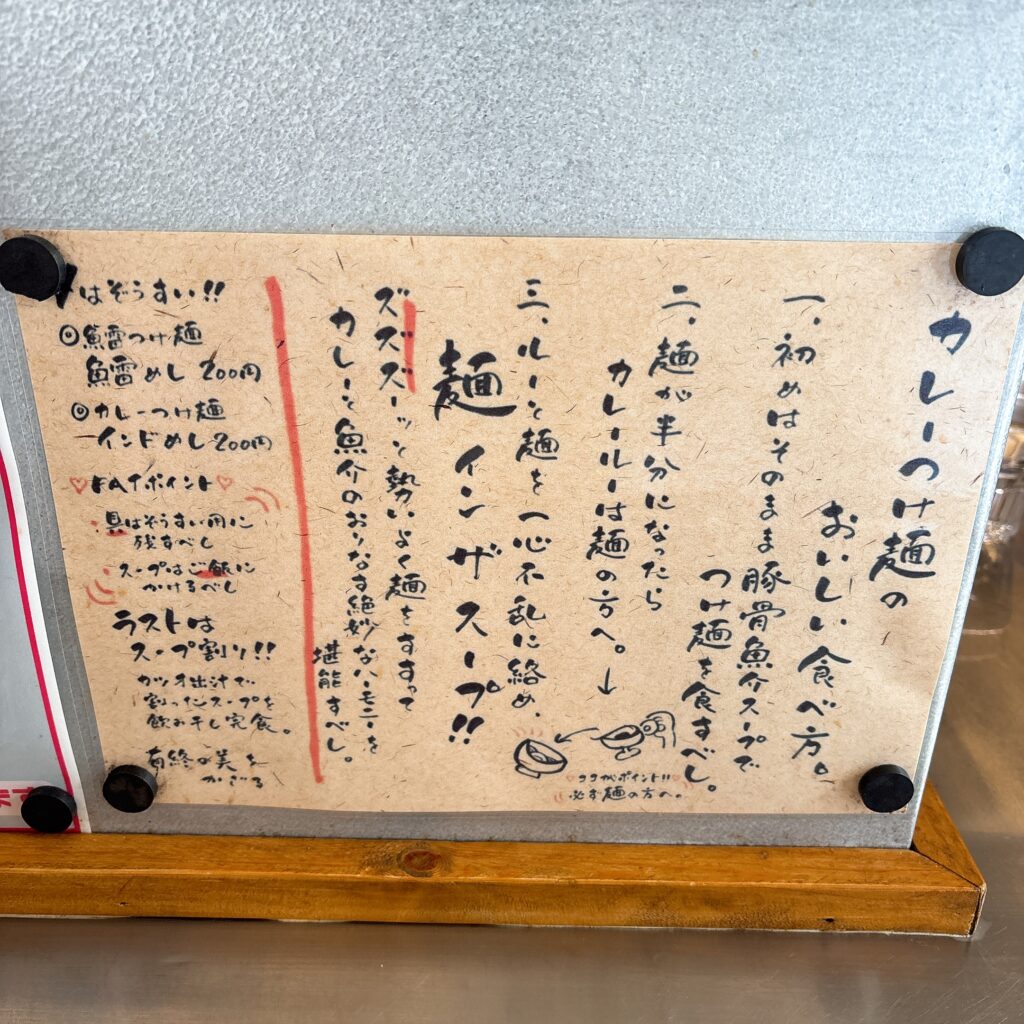 カレーつけ麺の
おいしい食べ方。
一、初めはそのまま豚骨魚介スープで
つけ麺を食すべし。
二、麺が半分になったら
カレールーは麺の方へ。→
ココがポイント!!
必ず麺の方へ。
三、ルーと麺を一心不乱に絡め、
麺インザスープ!!
ズズズーッと勢いよく麺をすすって
カレーと魚介のおりなす絶妙なハーモニーを
堪能すべし。
はぞうすい!!
◎魚雷つけ麺
魚雷めし 200円
◎カレーつけ麺
インドめし 200円
♡ポイント♡
具はぞうすい用に
残すべし
スープはご飯に
かけるべし
ラストは
スープ割り!!
カツオ出汁で
割ったスープを
飲み干し完食。
有終の美を
かざる
ます